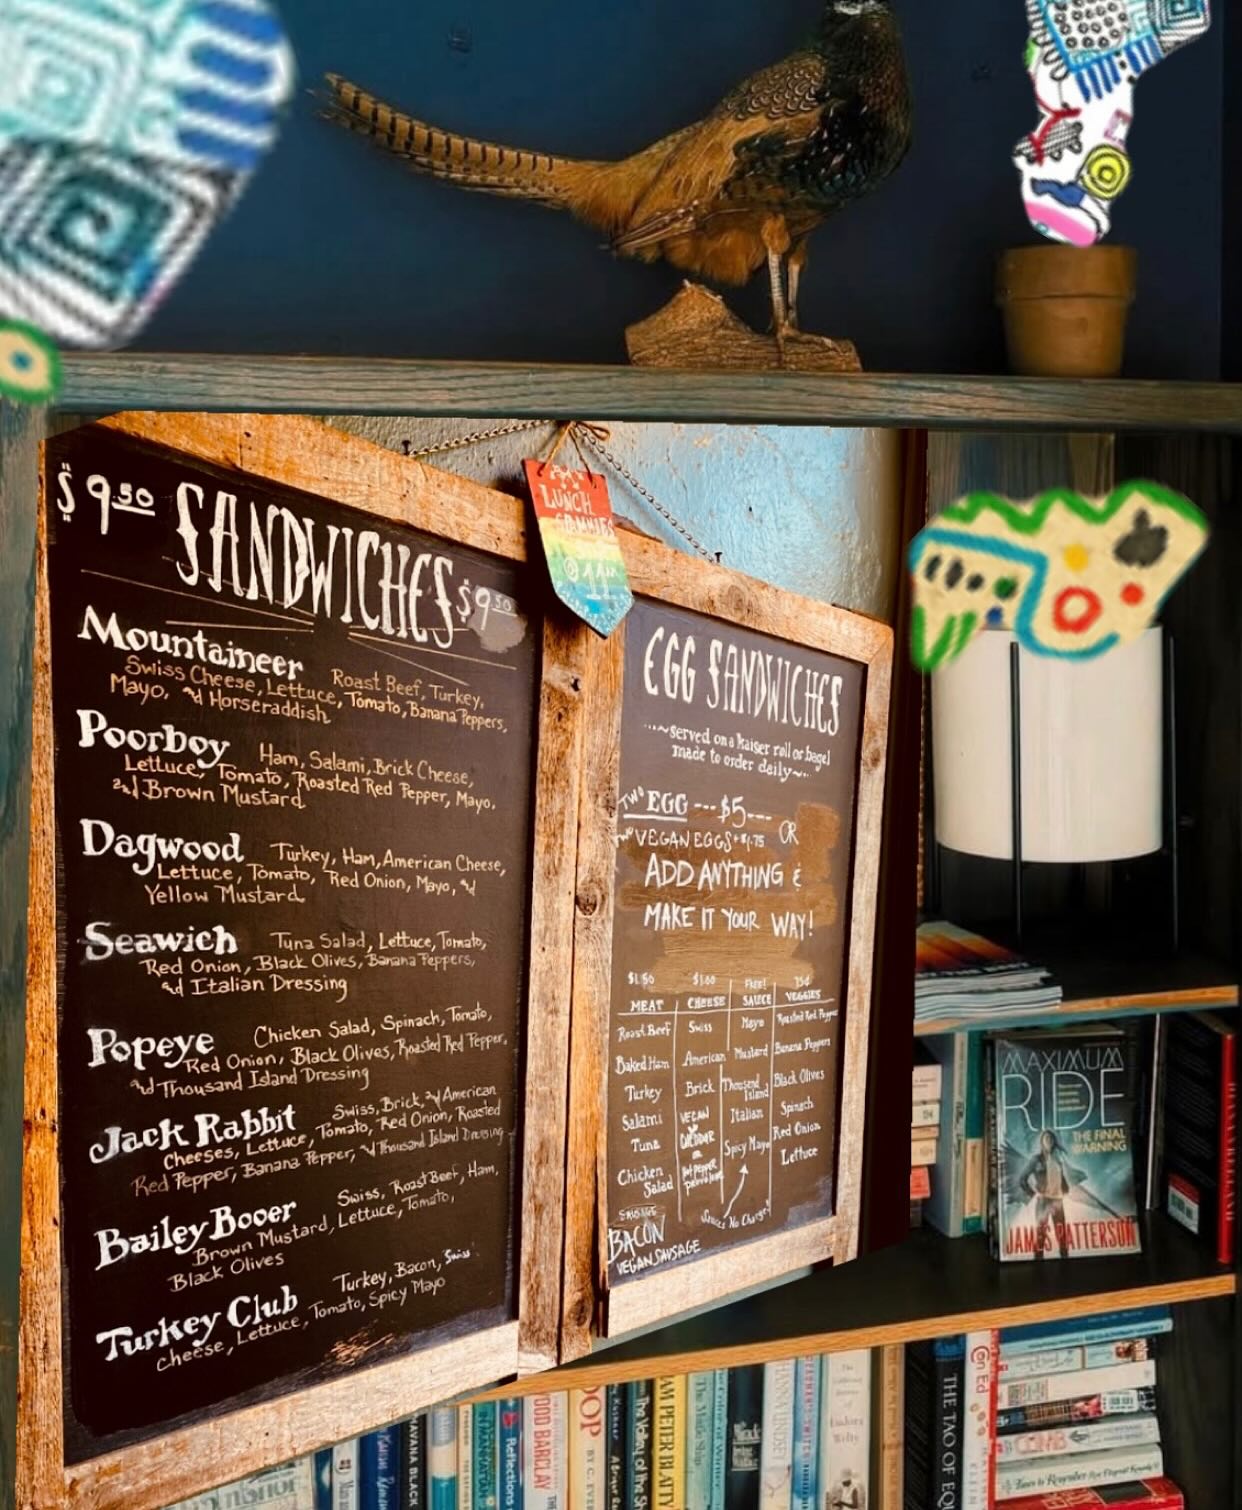 $9.50
SANDWICHES
$9.50
Mountaineer Roast Beef, Turkey,
Swiss Cheese, Lettuce, Tomato, Banana Peppers,
Mayo, and Horseraddish
Poorboy Ham, Salami, Brick Cheese,
Lettuce, Tomato, Roasted Red Pepper, Mayo,
and Brown Mustard
Dagwood Turkey, Ham, American Cheese,
Lettuce, Tomato, Red Onion, Mayo, and
Yellow Mustard
Seawich Tuna Salad, Lettuce, Tomato,
Red Onion, Black Olives, Banana Peppers,
and Italian Dressing
Popeye Chicken Salad, Spinach, Tomato,
Red Onion, Black Olives, Roasted Red Pepper,
and Thousand Island Dressing
Jack Rabbit Swiss, Brick, and American
Cheeses, Lettuce, Tomato, Red Onion, Roasted
Red Pepper, Banana Pepper, and Thousand Island Dressing
Bailey Booer Swiss, Roast Beef, Ham,
Brown Mustard, Lettuce, Tomato,
Black Olives
Turkey Club Turkey, Bacon, Swiss
Cheese, Lettuce, Tomato, Spicy Mayo
LUNCH
EGG SANDWICHES
...~served on a kaiser roll or bagel
made to order daily~...
TWO EGG --- $5---
TWO VEGAN EGGS +$1.75 OR
ADD ANYTHING &
MAKE IT YOUR WAY!
$1.50 $1.00 FREE! 75¢
MEAT CHEESE SAUCE VEGGIES
Roast Beef Swiss Mayo Roasted Red Pepper
Baked Ham American Mustard Banana Peppers
Turkey Brick Thousand Island Black Olives
Salami VEGAN CHEDDAR Italian Spinach
Tuna OR Spicy Mayo Red Onion
Chicken Salad Hot Pepper Lettuce
Sauces No Charge!
SAUSAGE
BACON
VEGAN SAUSAGE
MAXIMUM
RIDE
THE FINAL
WARNING
JAMES PATTERSON
HAVANA BLACK
Reflections
BARCLAY
The Valley of the
PETER BLATTY
Eudora
Welty
THE TAO OF
Con Ed